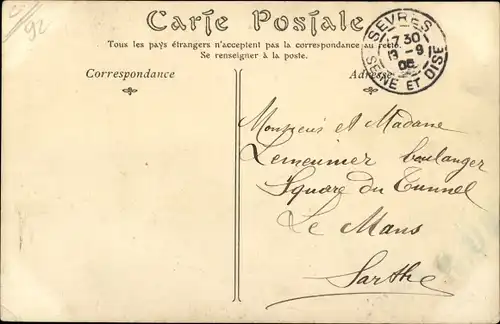 92
Carte Postale
Tous les pays étrangers n'acceptent pas la correspondance au recto.
Se renseigner à la poste.
Correspondance
Adresse
SEVRES
7 30
13 - 9
06
SEINE ET OISE
Monsieur et Madame
Lemeunier boulanger
Square du Tunnel
Le Mans
Sarthe